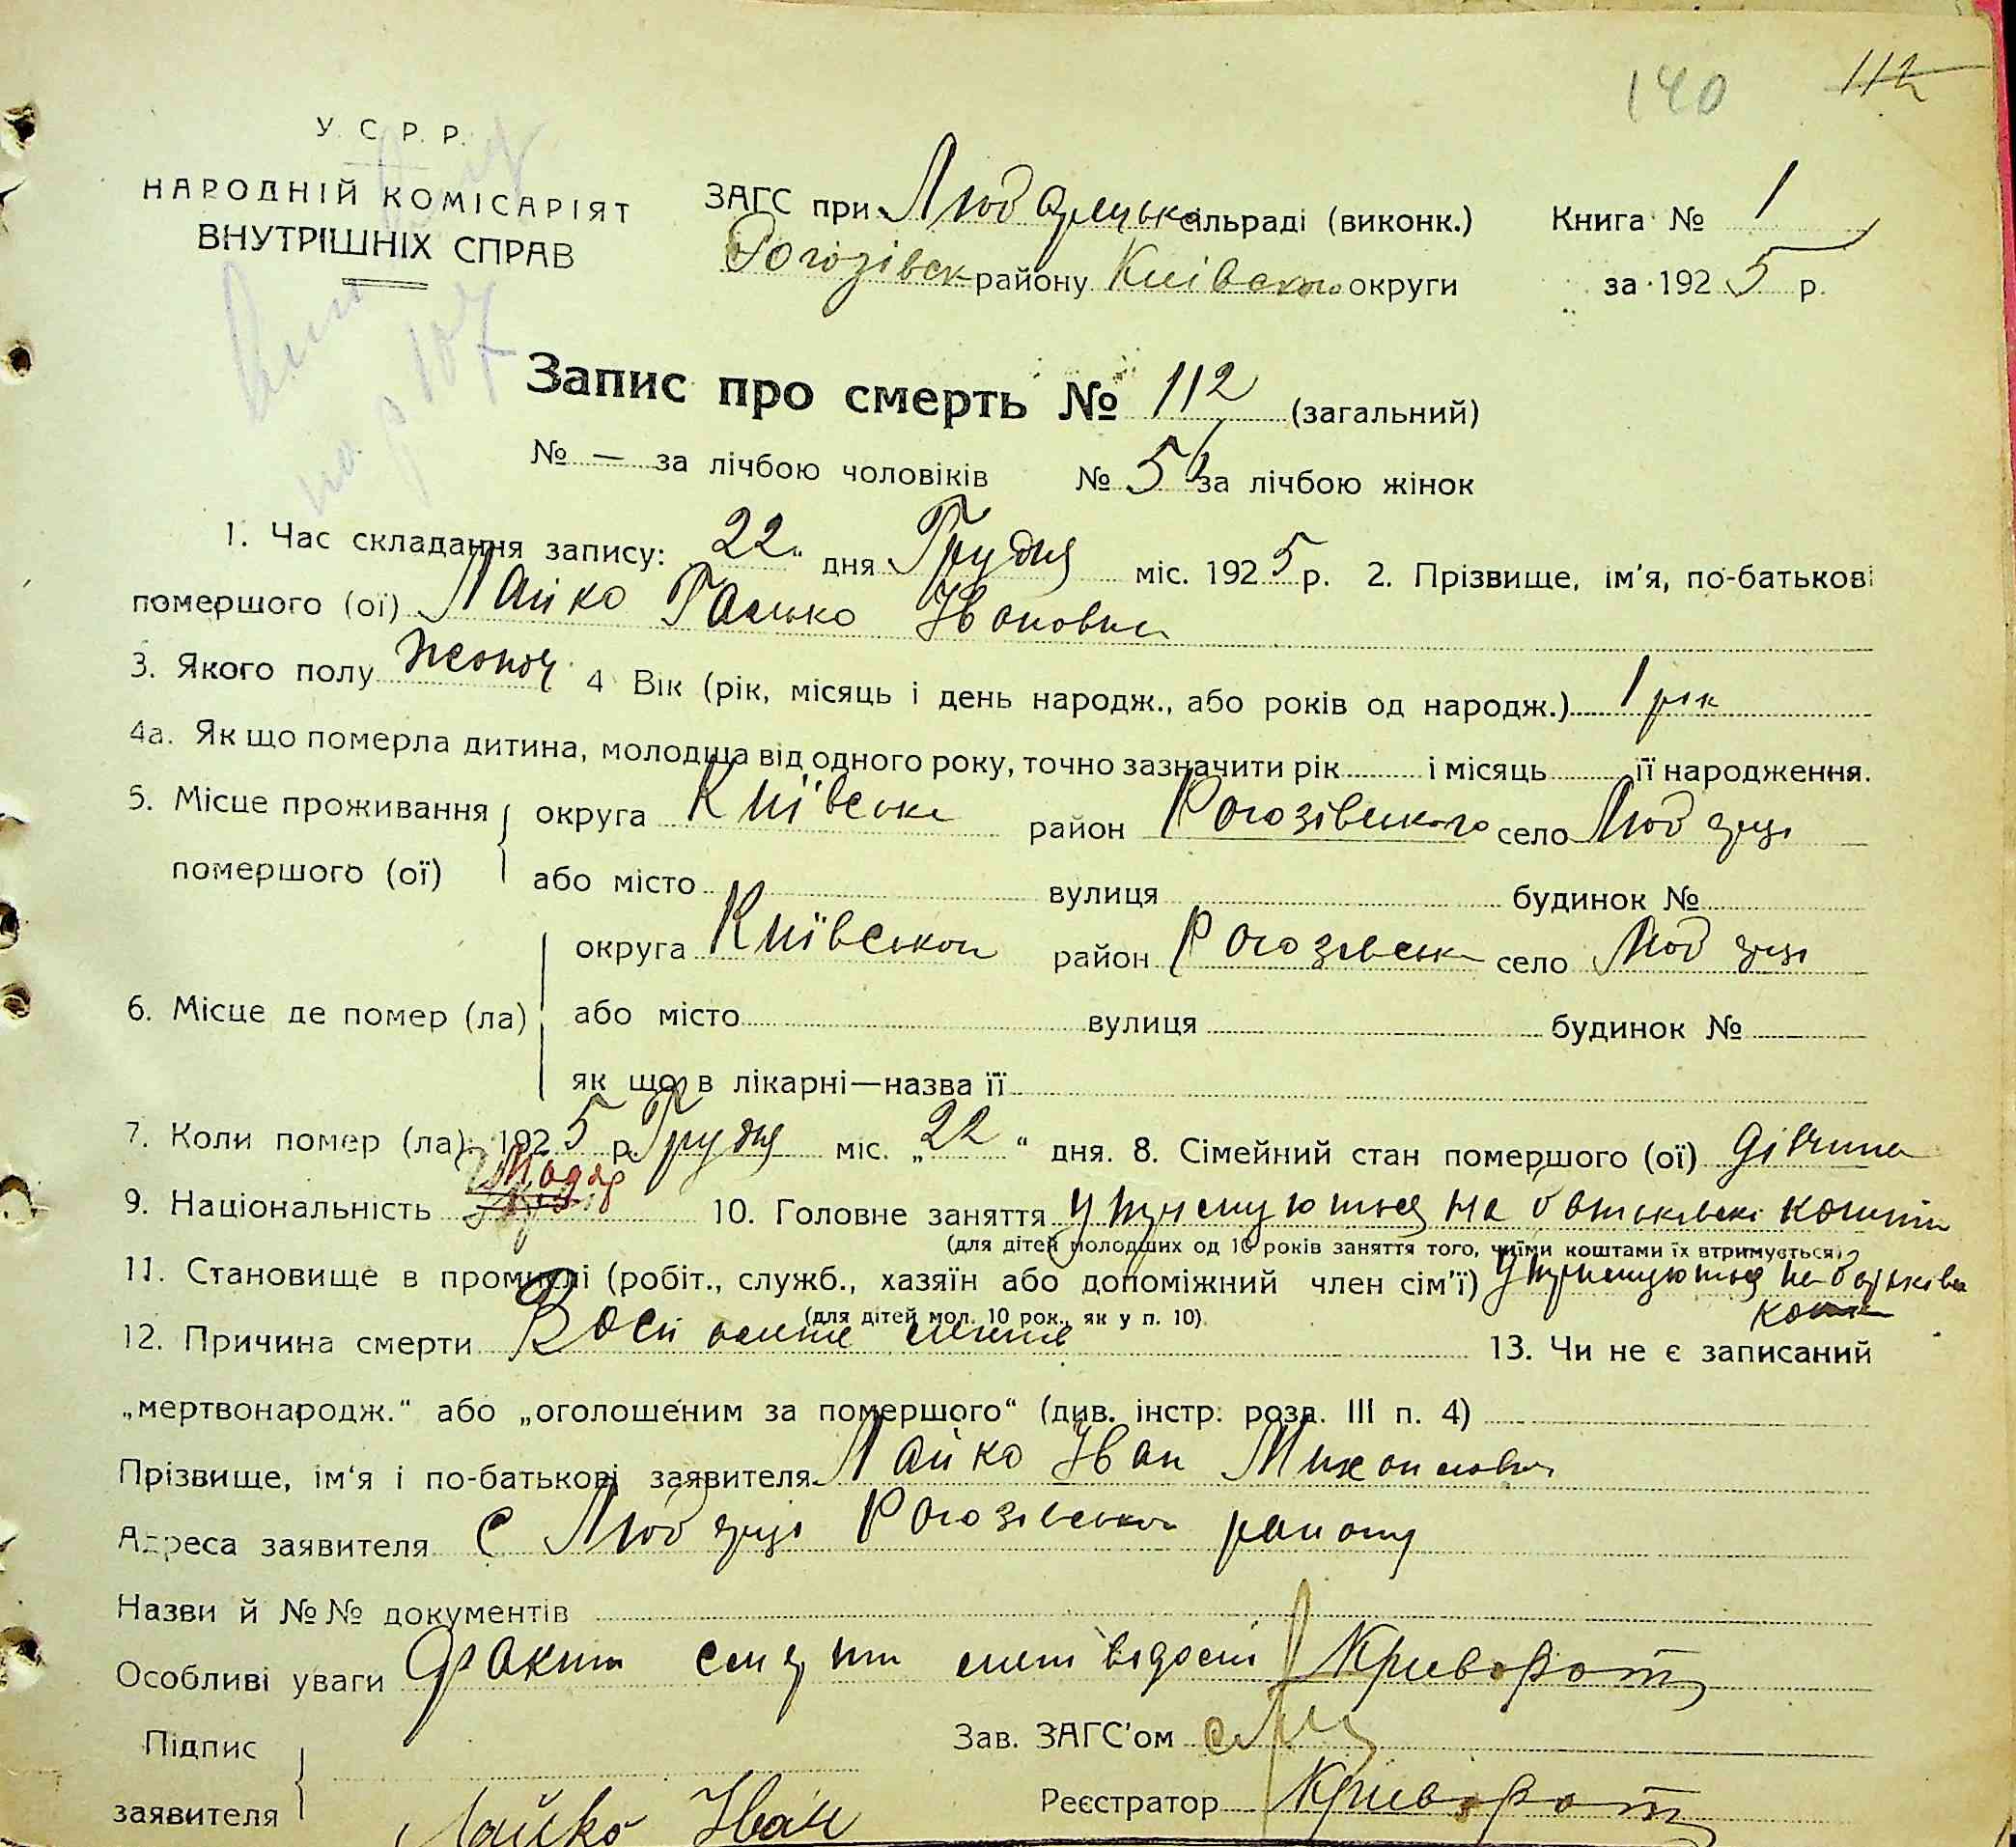 140 112
У. С. Р. Р.
НАРОДНІЙ КОМІСАРІЯТ
ВНУТРІШНІХ СПРАВ
ЗАГС при Любарецькій сільраді (виконк.) Книга № 1
Рогозівськ району Київського округи за 1925 р.
на 107
Запис про смерть № 112 (загальний)
№ — за лічбою чоловіків № 56 за лічбою жінок
1. Час складання запису: 22 " дня Грудня міс. 1925 р. 2. Прізвище, ім'я, по-батькові
помершого (ої) Лайко Галько Івановна
3. Якого полу жоноч 4 Вік (рік, місяць і день народж., або років од народж.) 1 рік
4а. Як що померла дитина, молодша від одного року, точно зазначити рік і місяць її народження.
5. Місце проживання округа Київське район Рогозівського село Любарці
помершого (ої) або місто вулиця будинок №
округа Київської район Рогозівськ село Любарці
6. Місце де помер (ла) або місто вулиця будинок №
як що в лікарні—назва її
7. Коли помер (ла): 1925 р. Грудня міс. „22" дня. 8. Сімейний стан помершого (ої) дівчина
9. Національність 10. Головне заняття утримуються на батьківські кошти
(для дітей молодших од 10 років заняття того, чиїми коштами їх втримується)
11. Становище в промислі (робіт., служб., хазяїн або допоміжний член сім'ї) утримуються на батьківськ
кошти
(для дітей мол. 10 рок., як у п. 10)
12. Причина смерти 13. Чи не є записаний
„мертвонародж." або „оголошеним за помершого" (див. інстр. розд. III п. 4)
Прізвище, ім'я і по-батькові заявителя Лайко Іван Михайлович
Адреса заявителя с Любарці Рогозівського району
Назви й №№ документів
Особливі уваги Факт смерти Криворот
Підпис Зав. ЗАГС'ом
заявителя Лайко Іван Реєстратор Криворот